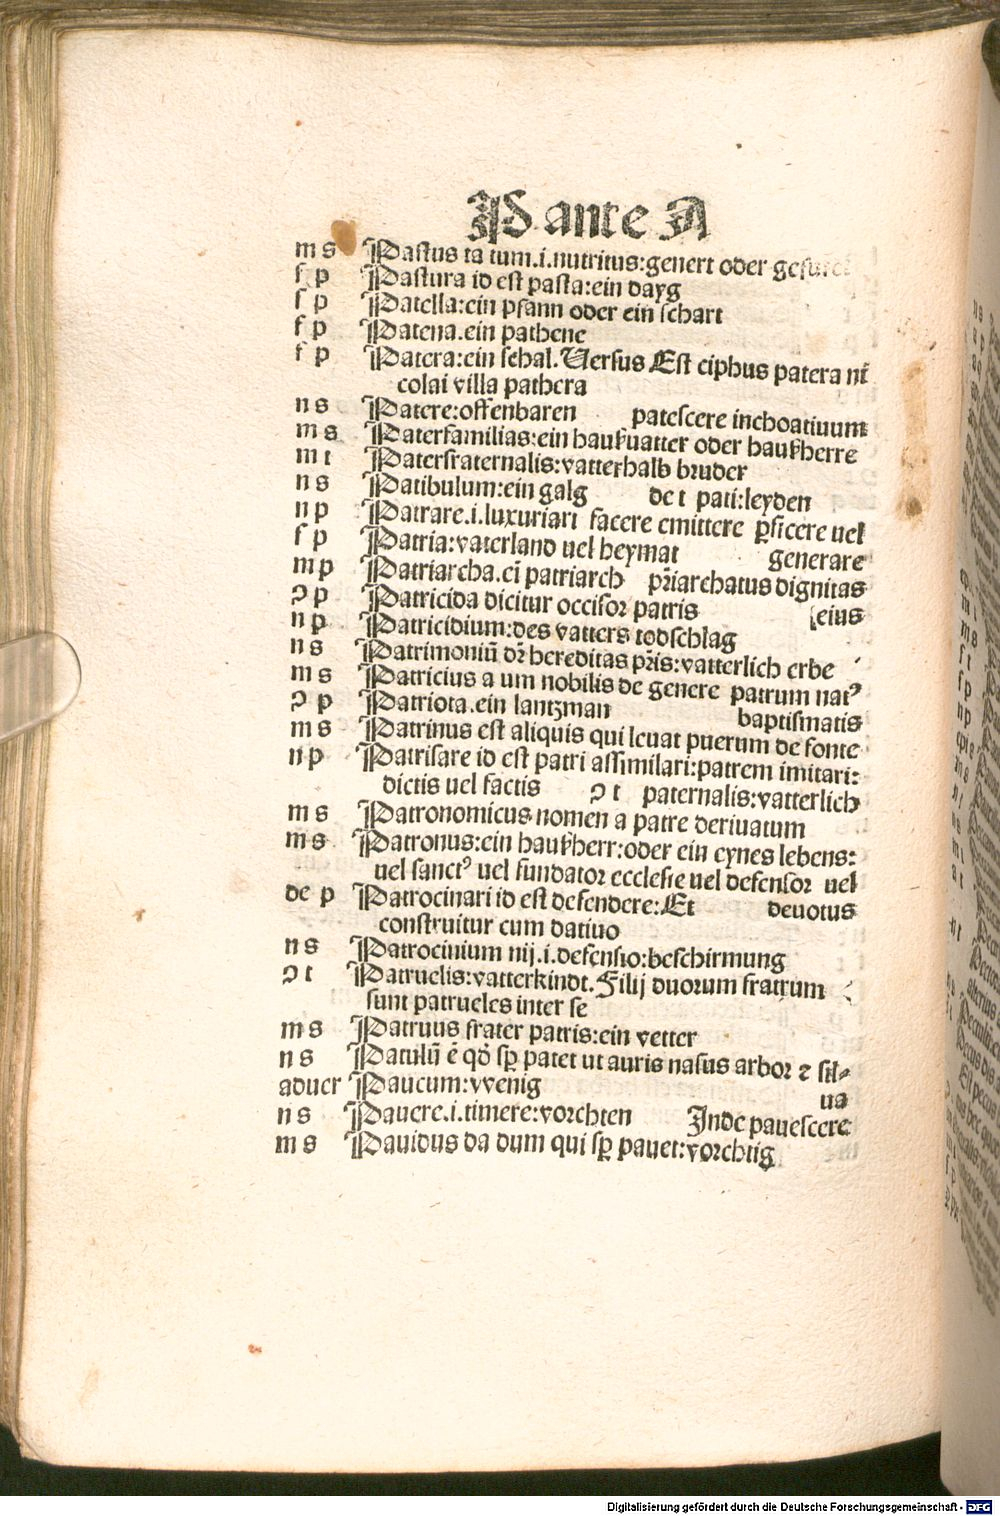 P ante A
m s Pastus ta tum.i.nutritus:genert oder
f p Pastura id est pasta:ein dayg
f p Patella:ein pfann oder ein schart
f p Patena.ein pathene
f p Patera:ein schal.Versus Est ciphus patera ni
colai villa pathera
n s Patere:offenbaren patescere inchoatiuum
m s Paterfamilias:ein haußuatter oder haußherre
m t Paterfraternalis:vatterhalb bruder
n s Patibulum:ein galg de t pati:leyden
n p Patrare.i.luxuriari facere emittere ꝑficere uel
f p Patria:vaterland uel heymat generare
m p Patriarcha.eī patriarch pr̄iarchatus dignitas
ꝯ p Patricida dicitur occisor patris [eius
n p Patricidium:des vatters todschlag
n s Patrimoniū dr̄ hereditas pr̄is:vatterlich erbe
m s Patricius a um nobilis de genere patrum natꝰ
ꝯ p Patriota.ein lantzman baptismatis
m s Patrinus est aliquis qui leuat puerum de fonte
n p Patrisare id est patri assimilari:patrem imitari:
dictis uel factis ꝯ t paternalis:vatterlich
m s Patronomicus nomen a patre deriuatum
m s Patronus:ein haußherr:oder ein eynes lehens:
uel sanctꝰ uel fundator ecclesie uel defensor uel
de p Patrocinari id est defendere:Et deuotus
construitur cum datiuo
n s Patrocinium nij.i.defensio:beschirmung
ꝯ t Patruelis:vatterkindt.Filij duorum fratrum
sunt patrueles inter se
m s Patruus frater patris:ein vetter
n s Patulū ē qd̕ sꝑ patet ut auris nasus arbor ⁊ sil⸗
aduer Paucum:vvenig ua
n s Pauere.i.timere:vorchten Inde pauescere
m s Pauidus da dum qui sꝑ pauet:vorchtig
Digitalisierung gefördert durch die Deutsche Forschungsgemeinschaft - DFG